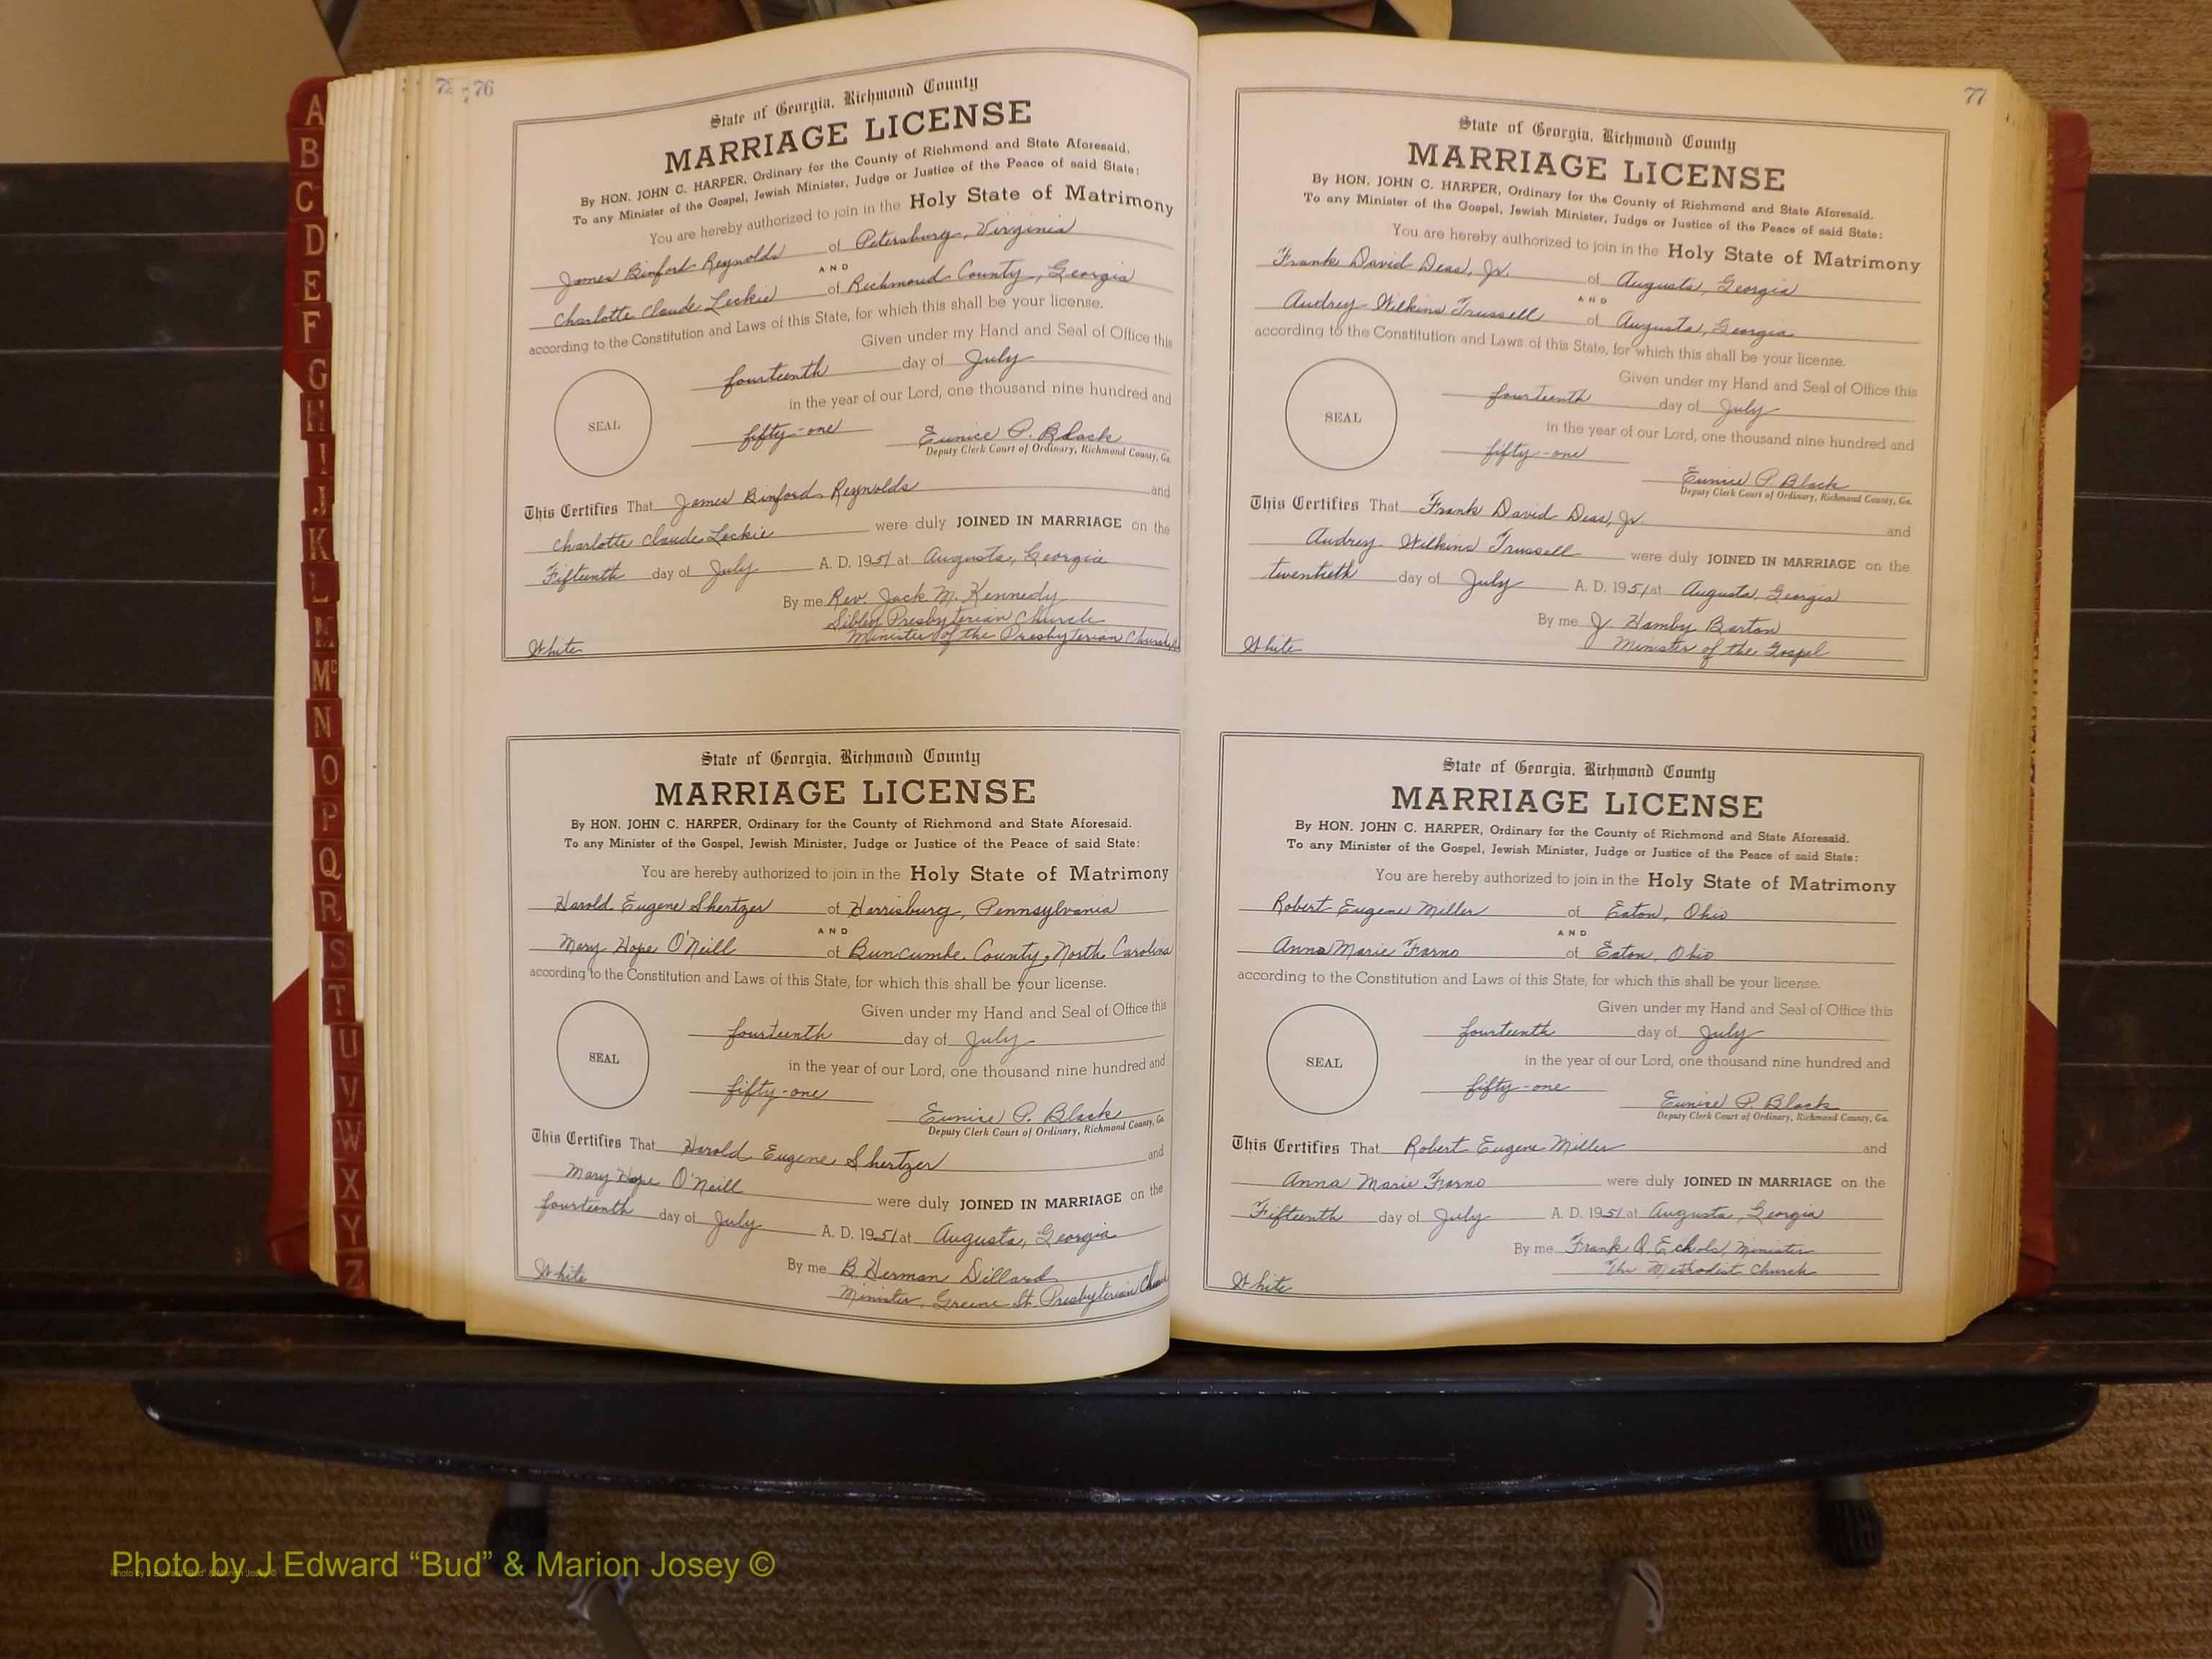 A
B
C
D
E
F
G
H
I
J
K
L
M
Mc
N
O
P
Q
R
S
T
U
V
W
X
Y
Z
76
State of Georgia, Richmond County
MARRIAGE LICENSE
By HON. JOHN C. HARPER, Ordinary for the County of Richmond and State Aforesaid.
To any Minister of the Gospel, Jewish Minister, Judge or Justice of the Peace of said State:
You are hereby authorized to join in the Holy State of Matrimony
James Binford Reynolds of Petersburg, Virginia
AND
Charlotte Claude Leckie of Richmond County, Georgia
according to the Constitution and Laws of this State, for which this shall be your license.
Given under my Hand and Seal of Office this
fourteenth day of July
in the year of our Lord, one thousand nine hundred and
SEAL
fifty-one Eunice P. Black
Deputy Clerk Court of Ordinary, Richmond County, Ga.
This Certifies That James Binford Reynolds and
Charlotte Claude Leckie were duly JOINED IN MARRIAGE on the
Fifteenth day of July A. D. 1951 at Augusta, Georgia
By me Rev. Jack M. Kennedy
Sibley Presbyterian Church
White Minister of the Presbyterian Church
State of Georgia, Richmond County
MARRIAGE LICENSE
By HON. JOHN C. HARPER, Ordinary for the County of Richmond and State Aforesaid.
To any Minister of the Gospel, Jewish Minister, Judge or Justice of the Peace of said State:
You are hereby authorized to join in the Holy State of Matrimony
Harold Eugene Shertzer of Harrisburg, Pennsylvania
AND
Mary Hope O'Neill of Buncumbe County, North Carolina
according to the Constitution and Laws of this State, for which this shall be your license.
Given under my Hand and Seal of Office this
fourteenth day of July
SEAL
in the year of our Lord, one thousand nine hundred and
fifty-one Eunice P. Black
Deputy Clerk Court of Ordinary, Richmond County, Ga
This Certifies That Harold Eugene Shertzer and
Mary Hope O'Neill were duly JOINED IN MARRIAGE on the
fourteenth day of July A. D. 1951 at Augusta, Georgia
By me B. Herman Dillard
White Minister, Greene St. Presbyterian
77
State of Georgia, Richmond County
MARRIAGE LICENSE
By HON. JOHN C. HARPER, Ordinary for the County of Richmond and State Aforesaid.
To any Minister of the Gospel, Jewish Minister, Judge or Justice of the Peace of said State:
You are hereby authorized to join in the Holy State of Matrimony
Frank David Deas, Jr. of Augusta, Georgia
AND
Audrey Wilkins Trussell of Augusta, Georgia
according to the Constitution and Laws of this State, for which this shall be your license.
Given under my Hand and Seal of Office this
fourteenth day of July
SEAL
in the year of our Lord, one thousand nine hundred and
fifty-one Eunice P. Black
Deputy Clerk Court of Ordinary, Richmond County, Ga.
This Certifies That Frank David Deas, Jr. and
Audrey Wilkins Trussell were duly JOINED IN MARRIAGE on the
twentieth day of July A. D. 1951 at Augusta, Georgia
By me J. Hamby Barton
White Minister of the Gospel
State of Georgia, Richmond County
MARRIAGE LICENSE
By HON. JOHN C. HARPER, Ordinary for the County of Richmond and State Aforesaid.
To any Minister of the Gospel, Jewish Minister, Judge or Justice of the Peace of said State:
You are hereby authorized to join in the Holy State of Matrimony
Robert Eugene Miller of Eaton, Ohio
AND
Anna Marie Farno of Eaton, Ohio
according to the Constitution and Laws of this State, for which this shall be your license.
Given under my Hand and Seal of Office this
fourteenth day of July
SEAL
in the year of our Lord, one thousand nine hundred and
fifty-one Eunice P. Black
Deputy Clerk Court of Ordinary, Richmond County, Ga.
This Certifies That Robert Eugene Miller and
Anna Marie Farno were duly JOINED IN MARRIAGE on the
Fifteenth day of July A. D. 1951 at Augusta, Georgia
By me Frank Q. Echols, Minister
The Methodist Church
White
Photo by J Edward “Bud” & Marion Josey ©